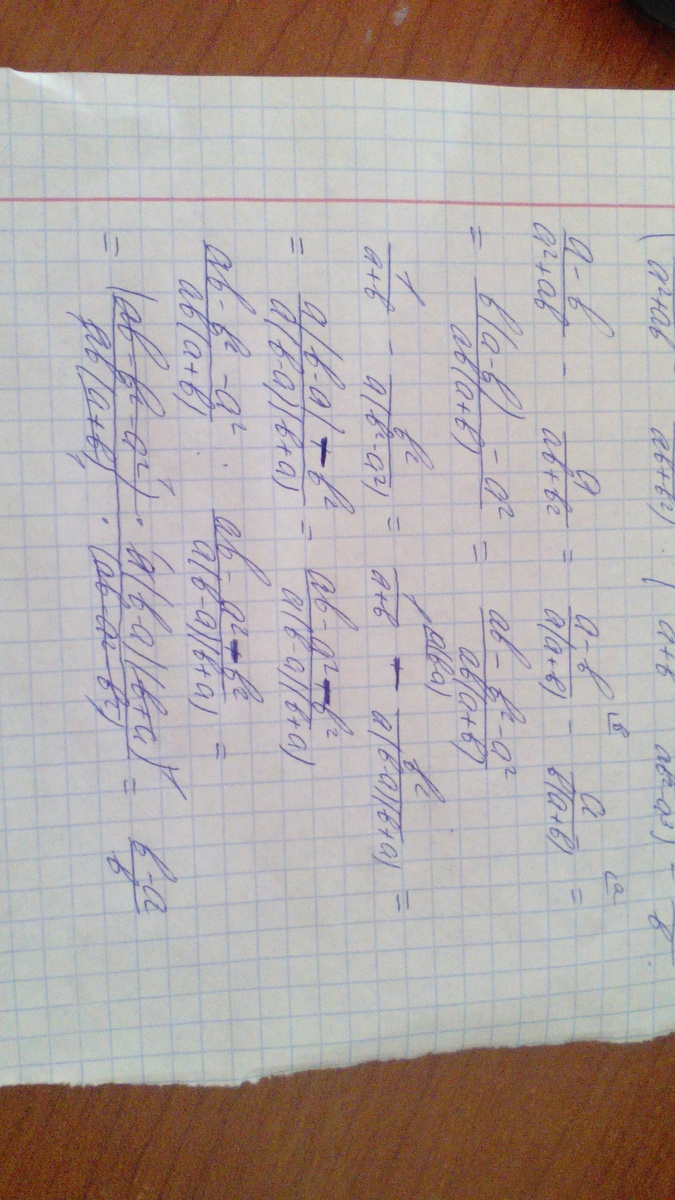 (a²+ab  ab+b²) : ( a+b  ab²-a³) = b
a-b/a²+ab - a/ab+b² = a-b/a(a+b) - a/b(a+b) =
= b(a-b) - a²/ab(a+b) = ab-b²-a²/ab(a+b)
1/a+b - b²/a(b²-a²) = 1/a+b - b²/a(b-a)(b+a) =
= a(b-a) - b²/a(b-a)(b+a) = ab-a²-b²/a(b-a)(b+a)
ab-b²-a²/ab(a+b) : ab-a²-b²/a(b-a)(b+a) =
= (ab-b²-a²) · a(b-a)(b+a)/ab(a+b) · (ab-a²-b²) = b-a/b